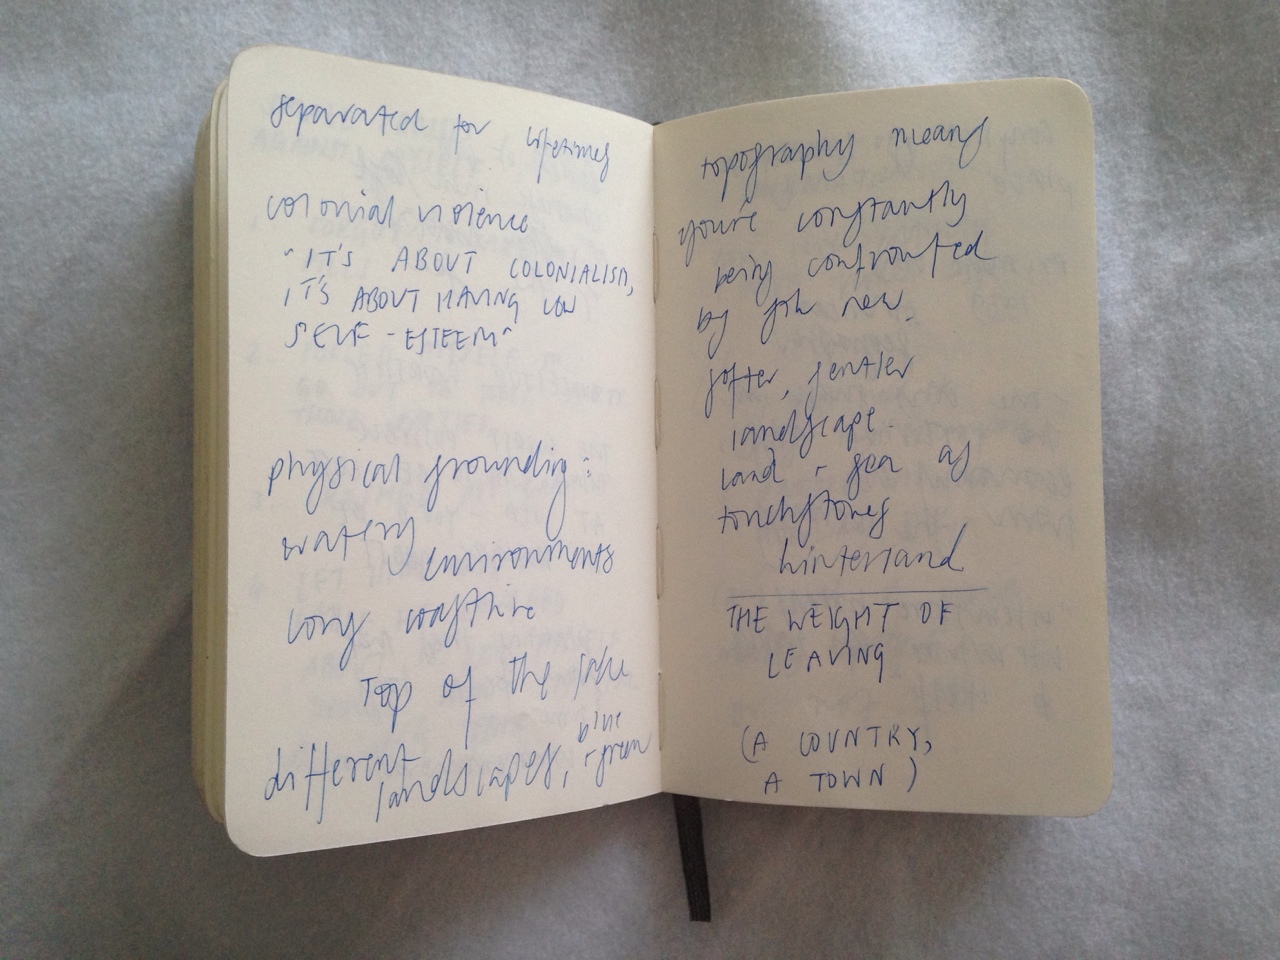 separated for lifetimes
colonial violence
"IT'S ABOUT COLONIALISM,
IT'S ABOUT HAVING LOW
SELF-ESTEEM"
physical grounding:
watery
environments
long coastline
Top of the
different blue
landscapes, + green
topography means
you're constantly
being confronted
by new.
softer, gentler
landscape.
land + sea as
touchstones
hinterland
THE WEIGHT OF
LEAVING
(A COUNTRY,
A TOWN)